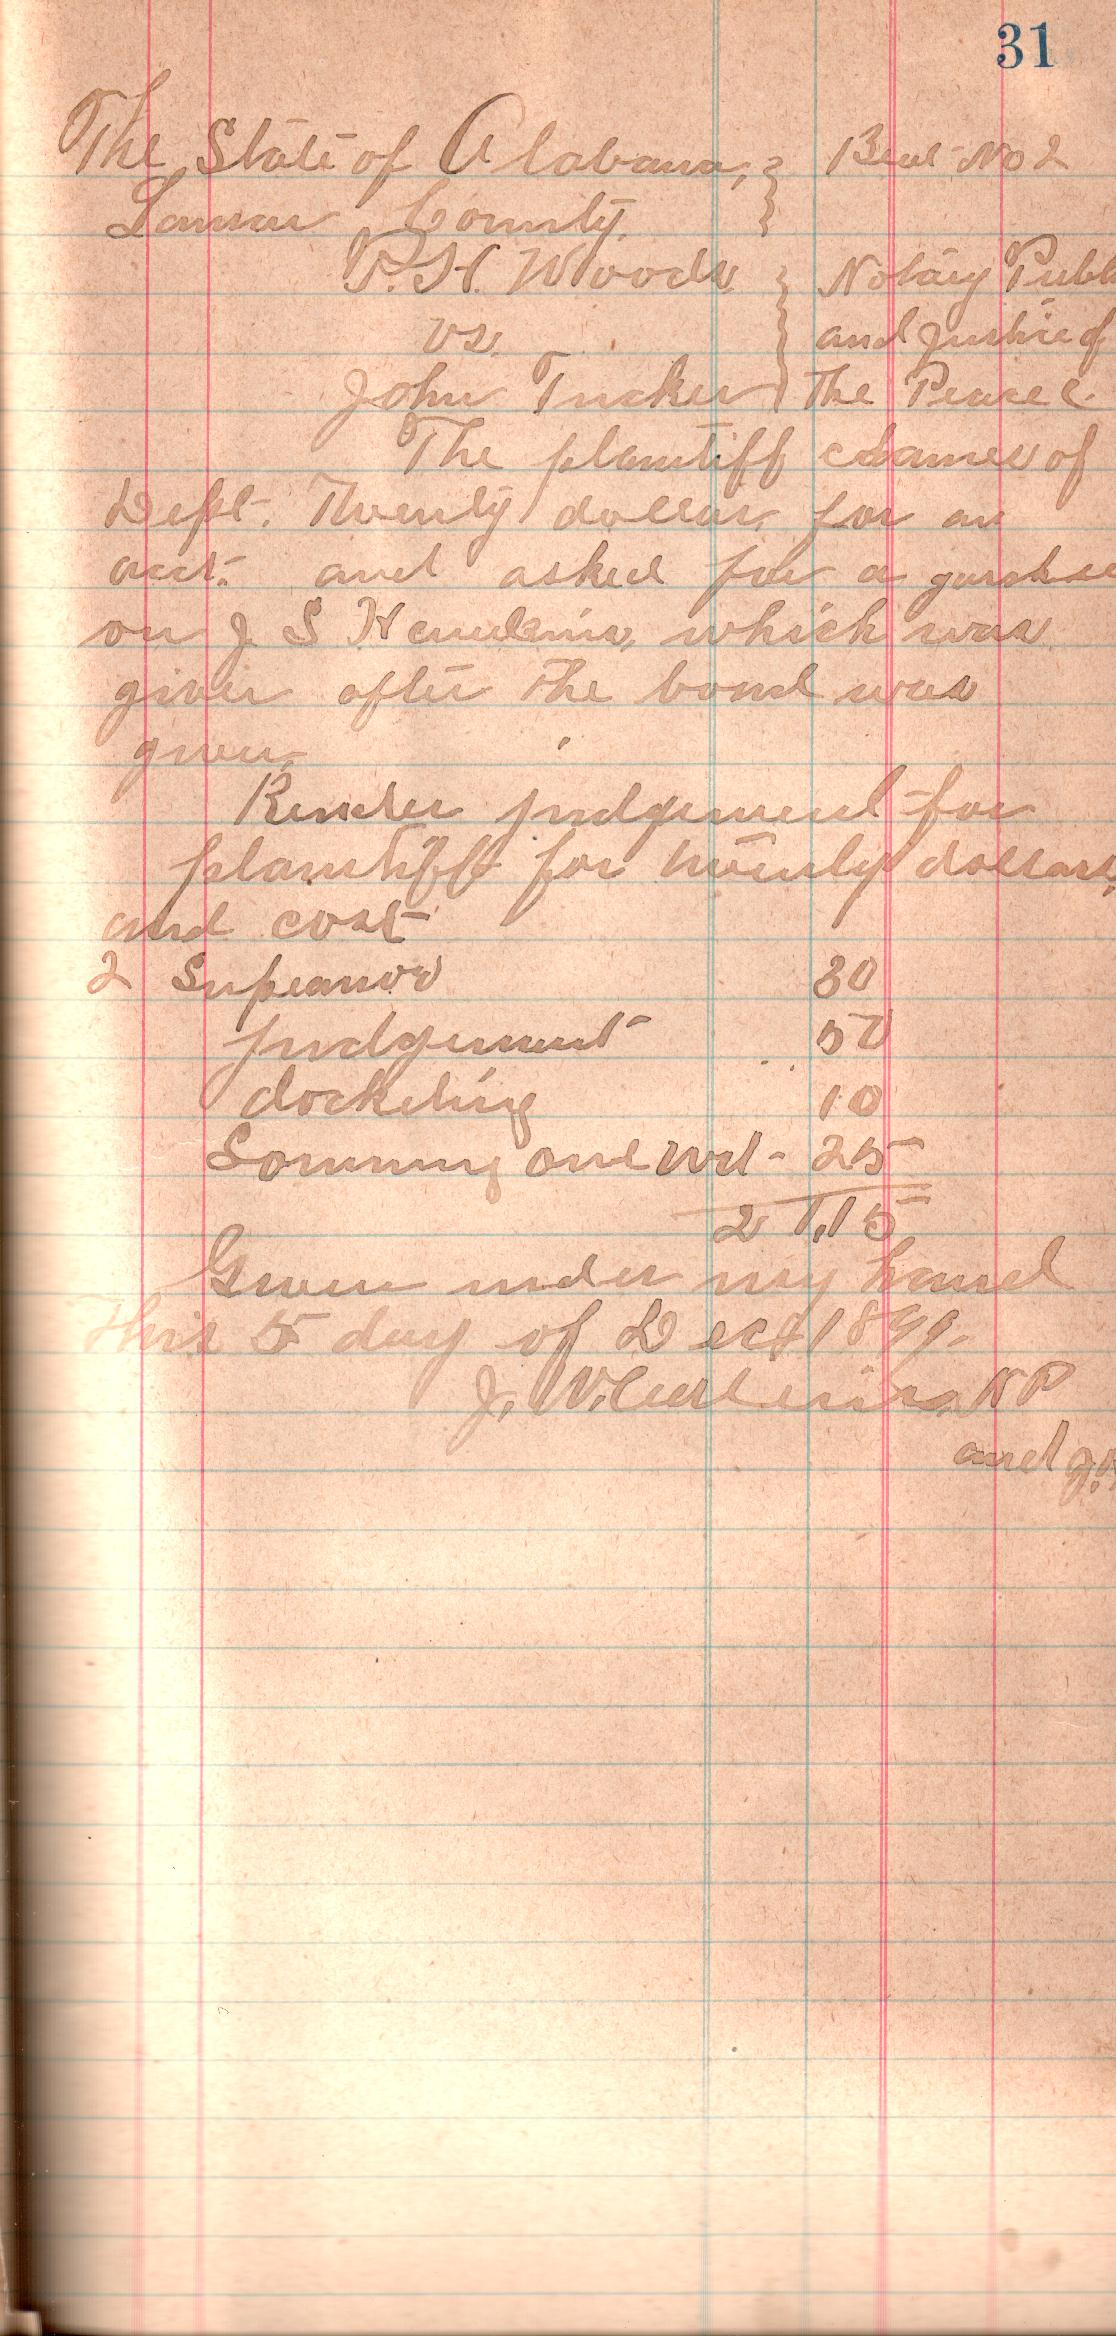 31
The State of Alabama, } Beat No 2
Lamar County.
P. H. Woods } Notary Publ
vs. and Justice of
John Tucker the Peace
The plantiff clames of
Deft. Twenty dollars for an
acct. and asked for a
on J S which was
given after the bond was
given.
Render judgement for
plantiff for twenty dollars
and cost
2 80
judgement 50
docketing 10
one 25
2 1.15
Given under my hand
This 5 day of Dect
J. N P
and J.